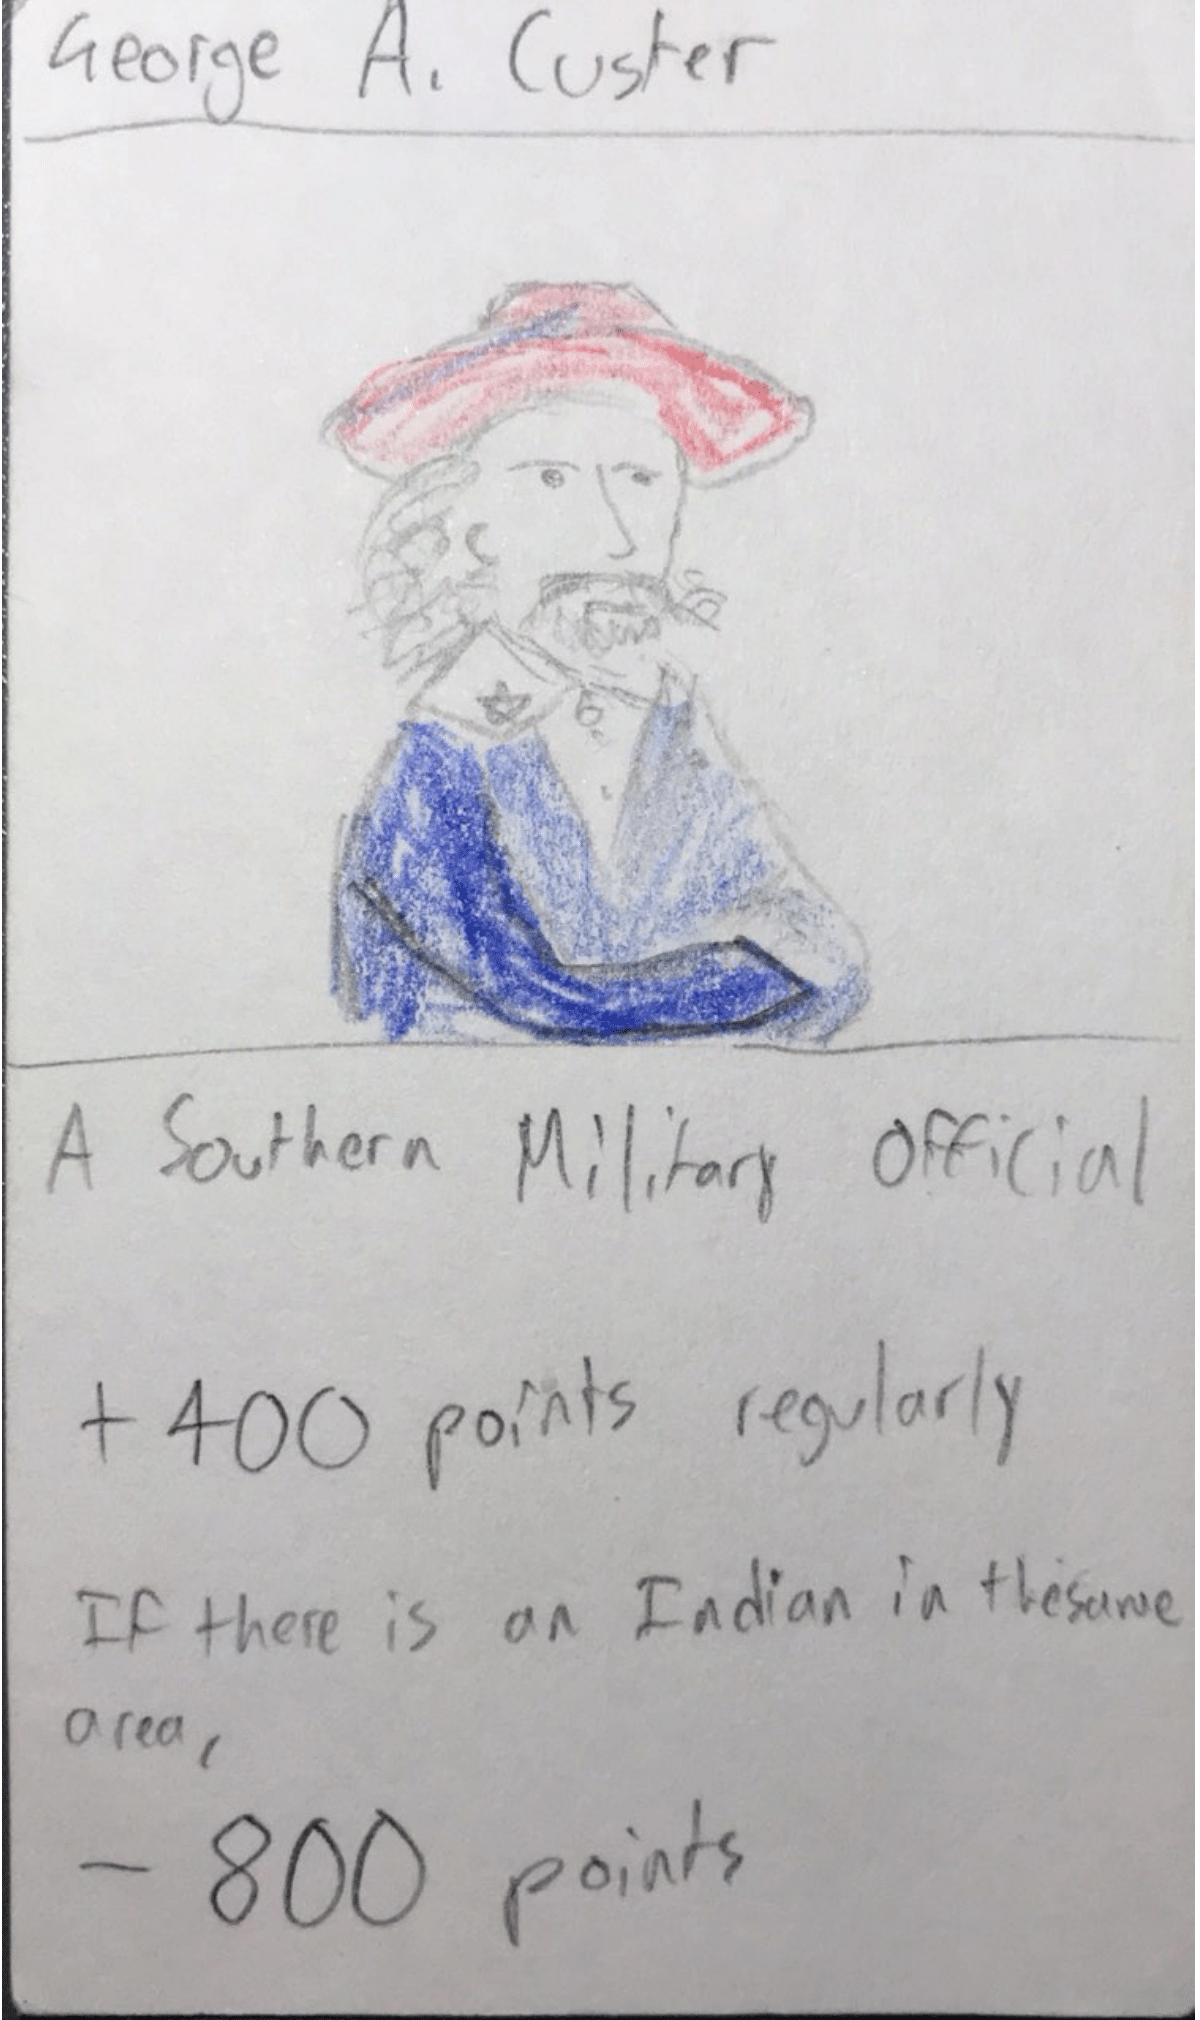 George A. Custer
A Southern Military Official
+ 400 points regularly
If there is an Indian in the same
area,
- 800 points